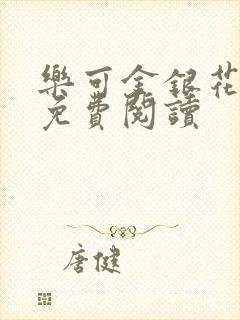 樂可金銀花
免費閱讀
唐健